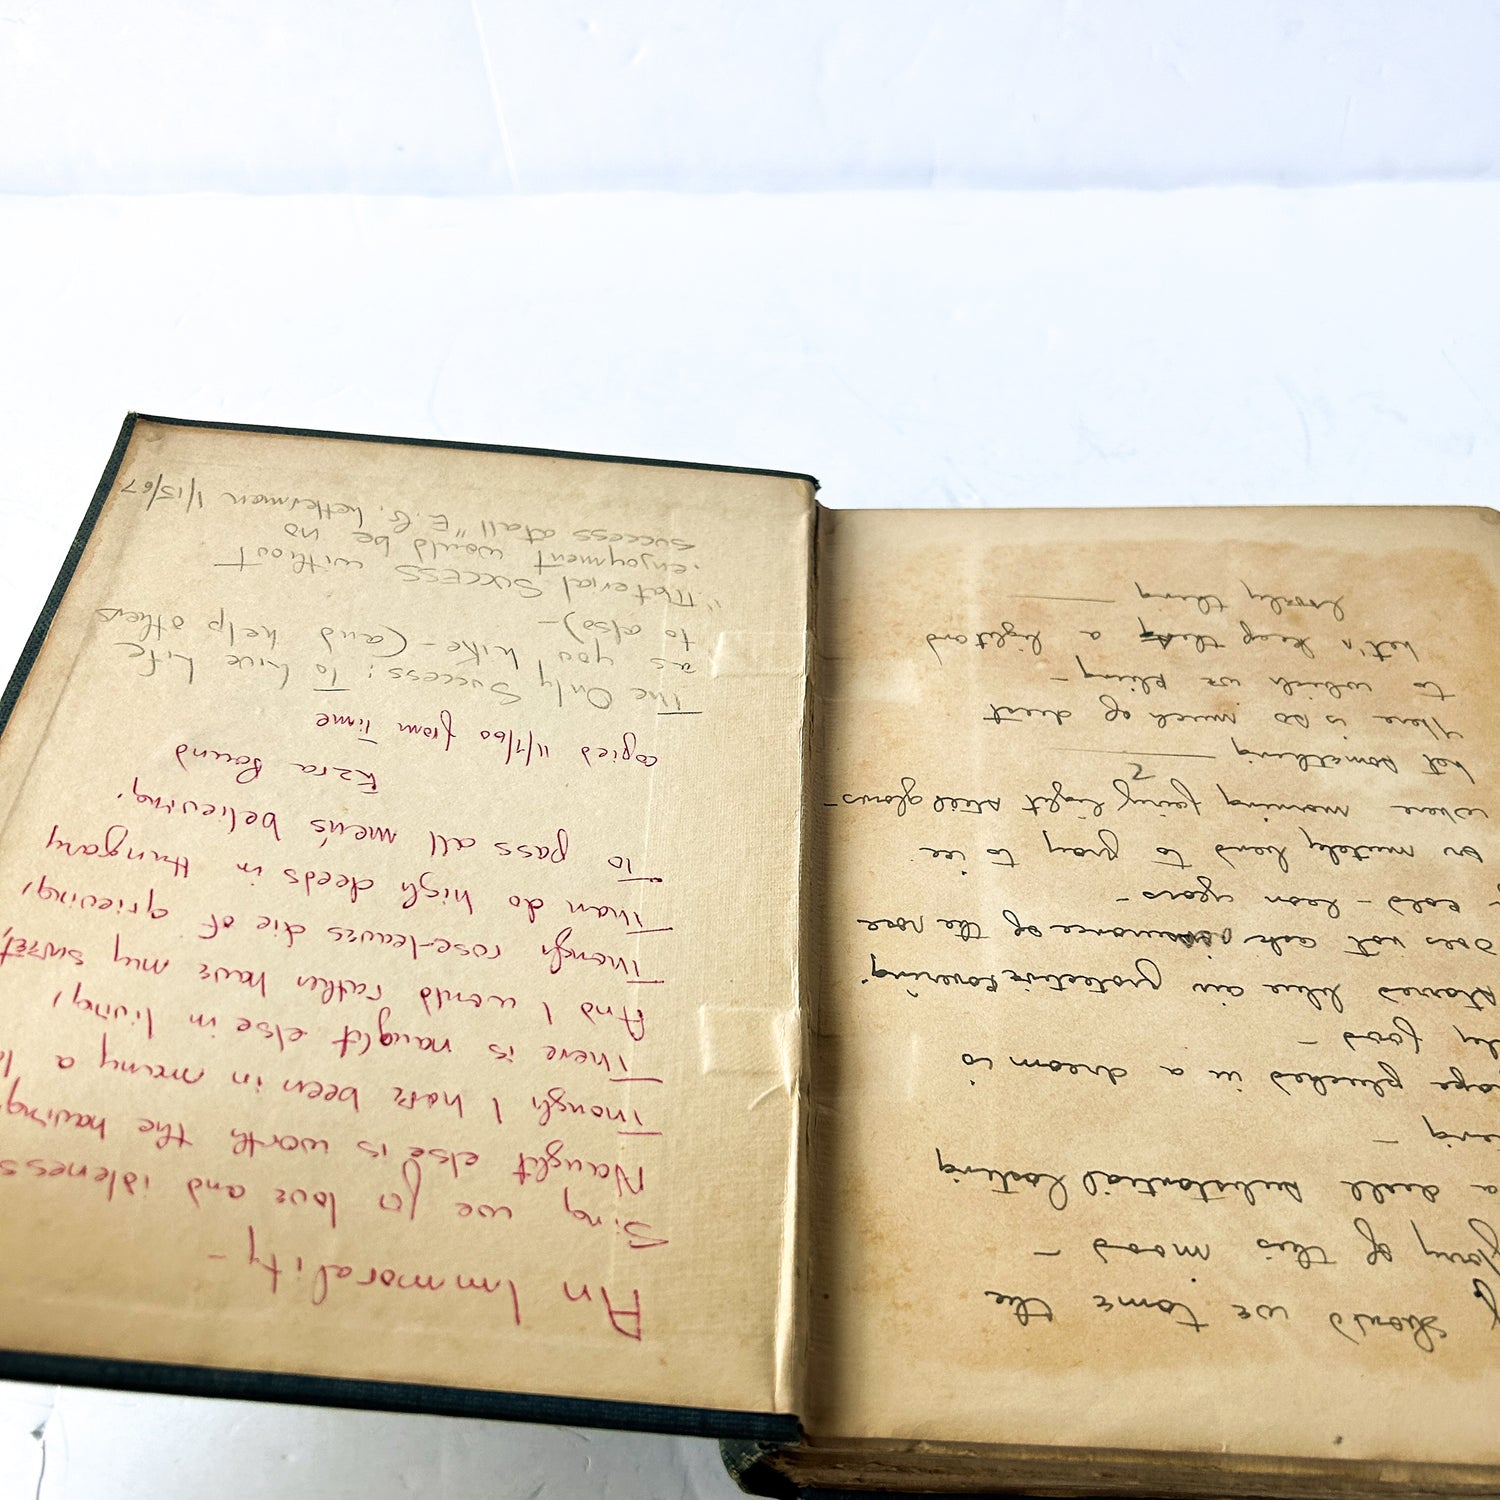 Should we tame the
glory of this mood –
a dull substantial lasting
plucked in a dream is
good –
blue air protective covering
Does not ask assurance of the rose
cold – lean years –
or mutely bend to gray to ice
where morning fairy light still glows –
not something —
There is so much of dust
to which we cling –
Let's keep a light and
lovely thing —
An Immorality –
Sing we for love and idleness
Naught else is worth the having,
Though I have been in many a
There is naught else in living,
And I would rather have my sweet,
Though rose-leaves die of grieving,
Than do high deeds in Hungary
To pass all men's believing.
Ezra Pound
copied 11/7/60 from Time
The Only Success: To live Life
as you like – (and help others
to also) –
"Material Success without
enjoyment would be no
success at all" E.G. Letterman 1/15/67